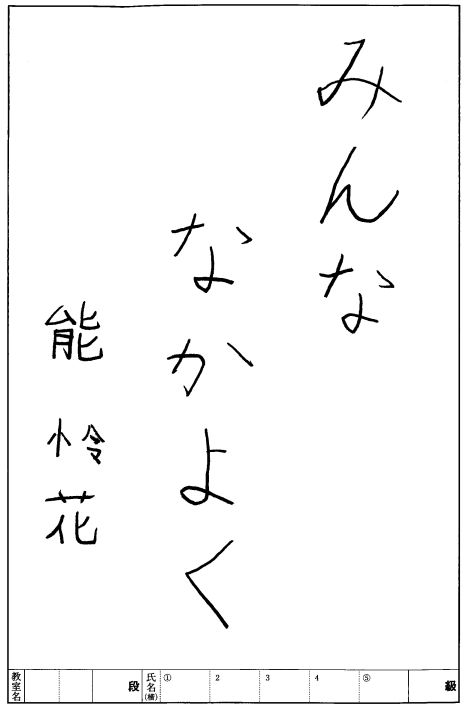 みんな
なかよく
能 怜花
級 ⑤ 4 3 2 ① 氏名(横) 段 教室名